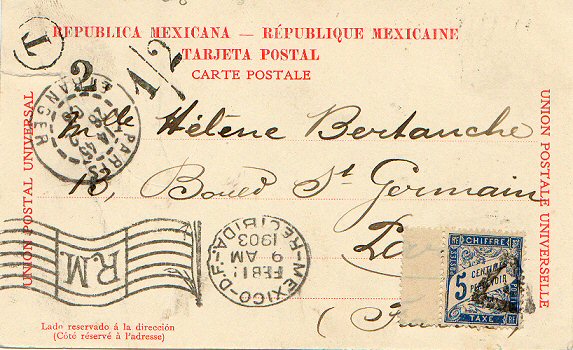 REPUBLICA MEXICANA — RÉPUBLIQUE MEXICAINE
TARJETA POSTAL
CARTE POSTALE
T
2
1/2
UNION POSTAL UNIVERSAL
UNION POSTALE UNIVERSELLE
PARIS
ETRANGER
Mlle Hélène Bertanche
13, Bould St Germain
R.M.
MEXICO-D.F.
RECIBIDA
FEB 11
9 AM
1903
CHIFFRE
5
TAXE
RF
Lado reservado á la dirección
(Côté réservé à l'adresse)